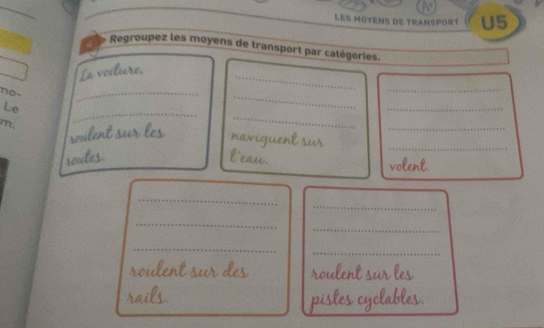 LES MOYENS DE TRANSPORT U5
Regroupez les moyens de transport par catégories.
La voiture,
roulent sur les
routes.
naviguent sur
l'eau.
volent.
roulent sur des
rails.
roulent sur les
pistes cyclables.
Le